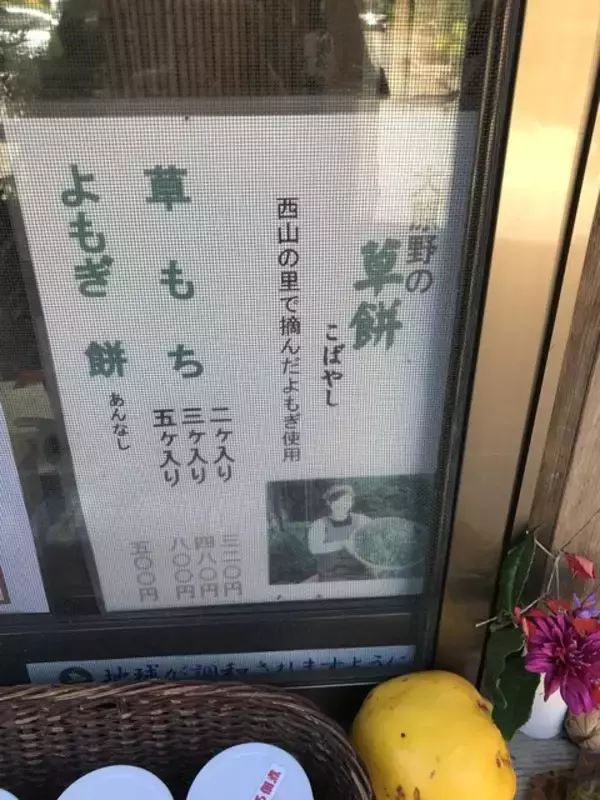 大原野の
草餅
こばやし
西山の里で摘んだよもぎ使用
草もち
二ケ入り 三二〇円
三ケ入り 四八〇円
五ケ入り 八〇〇円
よもぎ餅 あんなし 五〇〇円
地球が調和されますように